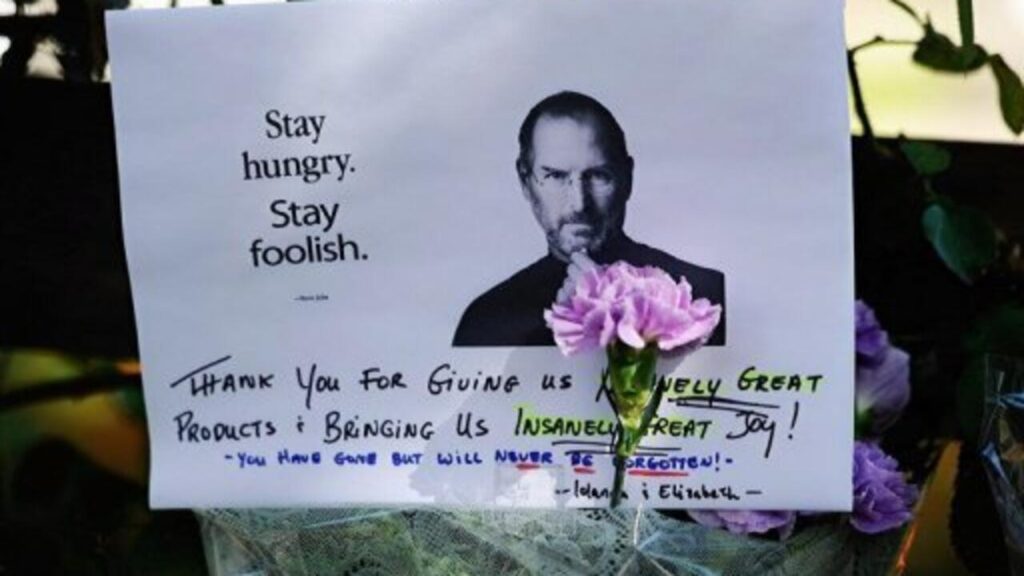 Stay
hungry.
Stay
foolish.
THANK YOU FOR GIVING US GREAT
PRODUCTS & BRINGING US INSANELY GREAT JOY!
- YOU HAVE GONE BUT WILL NEVER BE FORGOTTEN! -
& Elizabeth —